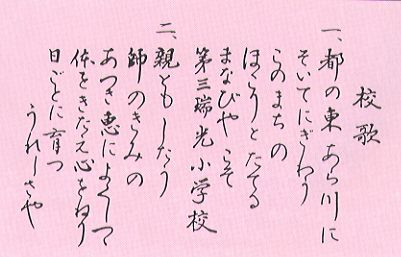 校歌
一、都の東あら川に
そいてにぎわう
このまちの
ほこりとたてる
まなびやこそ
第三瑞光小学校
二、親ともしたう
師のきみの
あつき恵によくしつつ
体をきたえ心をねり
日ごとに育つ
うれしさや